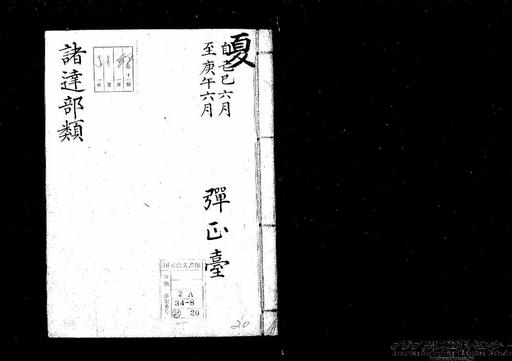 夏
自己巳六月
至庚午六月
彈正臺
諸達部類
国立公文書館
2 A
34-8
20
20